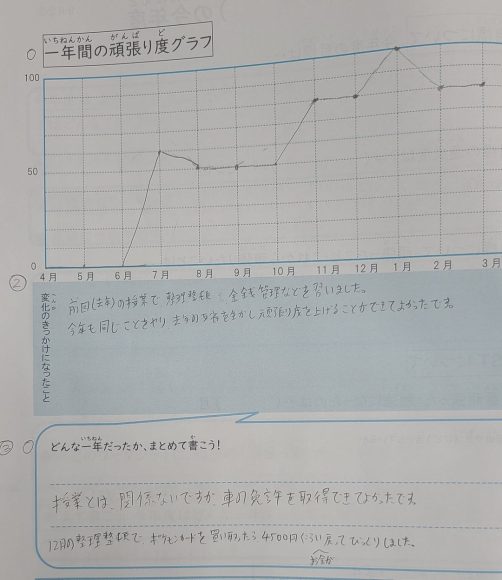 いちねんかん がんば ど
一年間の頑張り度グラフ
100
50
0
4月 5月 6月 7月 8月 9月 10月 11月 12月 1月 2月 3月
②
変化のきっかけになったこと
前回(去年)の授業で整理整頓、金銭管理などを習いました。
今年も同じことをやり、去年の を生かし頑張り度を上げることができてよかったです。
③
いちねん か
どんな一年だったか、まとめて書こう!
授業とは関係ないですが車の免許を取得できてよかったです。
12月の整理整頓で、ポケモンカードを買い取ったら4500円くらい戻ってびっくりしました。
お金が